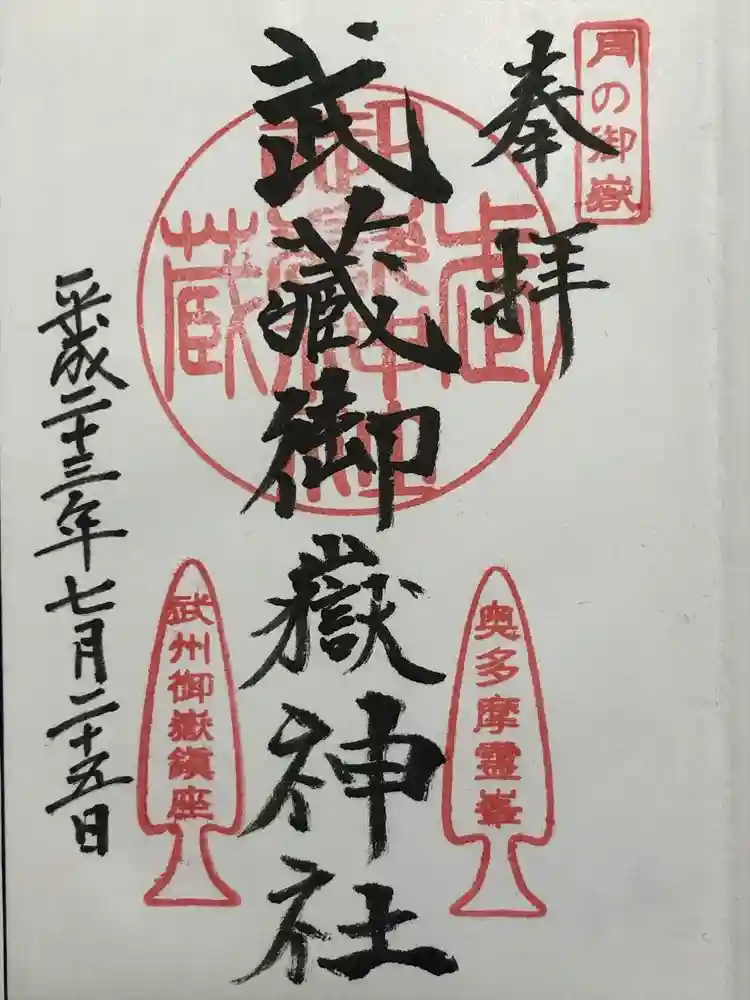 月の御嶽
奉拝
奥多摩霊峯
武蔵御嶽神社
武蔵
御嶽神社
武州御嶽鎮座
平成二十三年七月二十五日